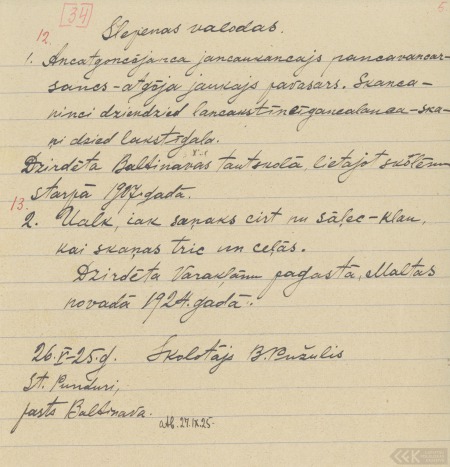 34
6
12. Slepenas valodas.
1. Ancatgoncājanca jancaukancajs pancavancar-
sancs - atgāja jaukajs pavasars. Skanca-
ninci dziendzied lancakstincīgancalanca - ska-
ņi dzied lakstīgala.
Dzirdēta Baltinavas tautskolā, lietājot skōlēnu
starpā 1907. gadā.
13.
2. Ualk, iak saņaks cirt nu sāļec - klau,
kai skaņas tric un ceļās.
Dzirdēta Varakļānu pagastā, Maltas
novadā 1924. gadā.
26.V-25.g. Skolotājs B. Pužulis
St. Punduri,
pasts Baltinava.
atb. 27.IX.25.